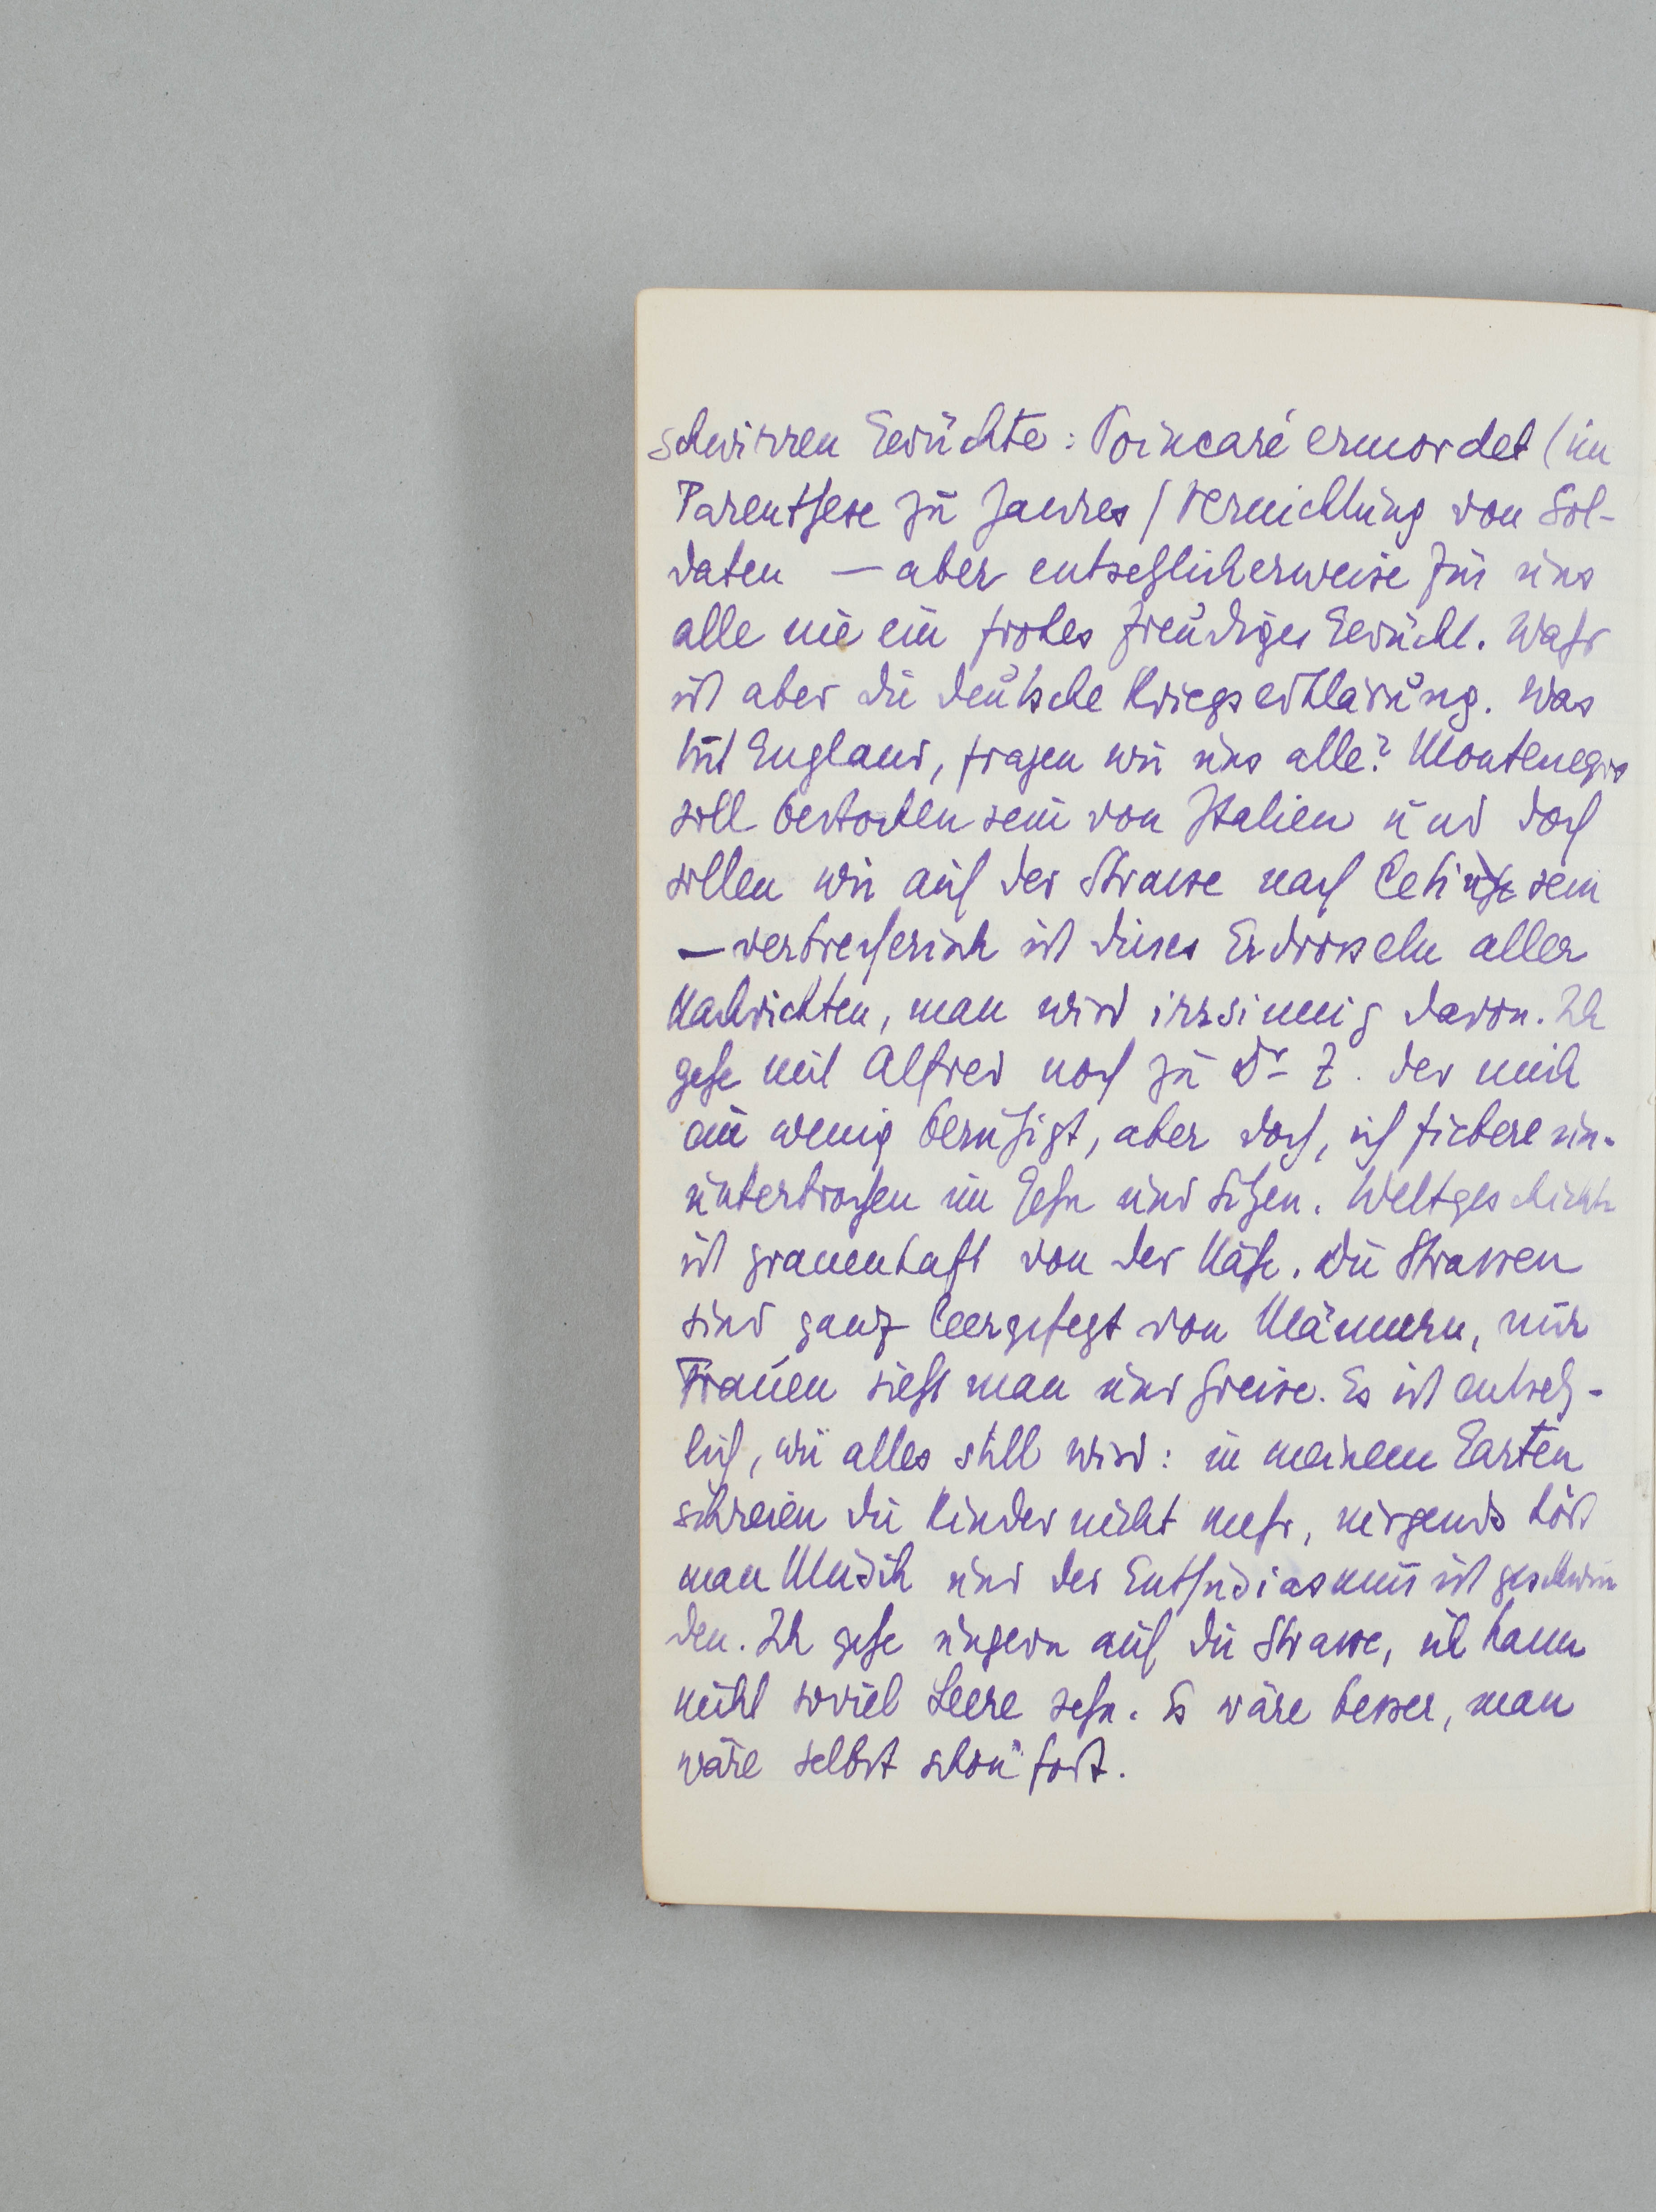 schwirren Gerüchte: Poincaré ermordet (im
Parenthese zu Jaures) Vernichtung von Sol-
daten — aber entsetzlicherweise für uns
alle nie ein frohes freudiges Gerücht. Wahr
ist aber die deutsche Kriegserklärung. Was
tut England, fragen wir uns alle? Montenegro
soll bestochen sein von Italien und doch
sollen wir auf der Strasse nach Cetinje sein
— verbrecherisch ist dieses Erdrosseln aller
Nachrichten, man wird irrsinnig davon. Ich
gehe mit Alfred noch zu Dr Z. der mich
ein wenig beruhigt, aber doch, ich fiebere un-
unterbrochen im Gehn und Sitzen. Weltgeschichte
ist grauenhaft von der Nähe. Die Strassen
sind ganz leergefegt von Männern, nur
Frauen sieht man und Greise. Es ist entsetz-
lich, wie alles still wird: in meinem Garten
schreien die Kinder nicht mehr, nirgends hört
man Musik und der Enthusiasmus ist geschwun
den. Ich gehe ungern auf die Strasse, ich kann
nicht soviel Leere sehn. Es wäre besser, man
wäre selbst schon fort.